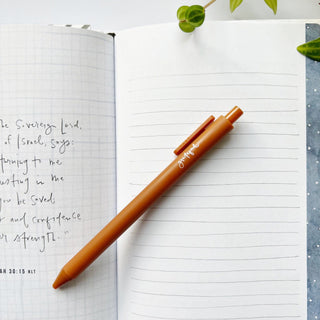 he Sovereign Lord,
of Israel, says:
turning to me
esting in me
you be saved.
and confidence
r strength."
AH 30:15 NLT
grateful